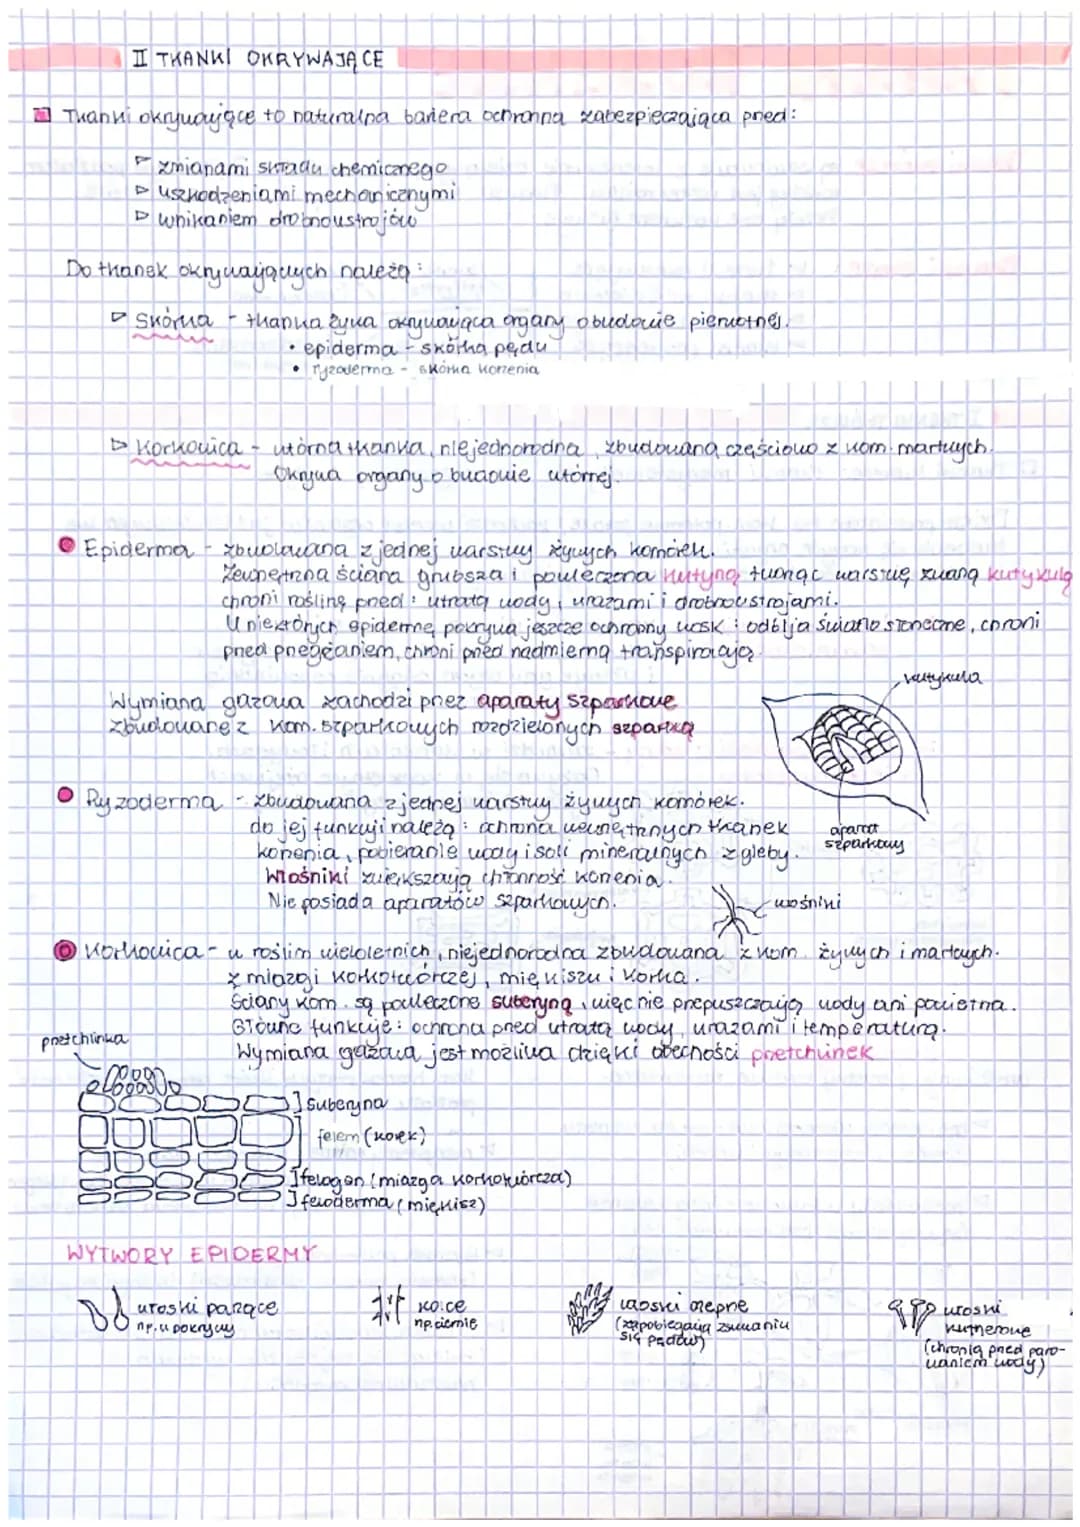 II TKANKI OKRYWAJĄCE
Tkanki okrywające to naturalna bariera ochronna zabezpieczająca przed:
▷ zmianami składu chemicznego
▷ uszkodzeniami mechanicznymi
▷ wnikaniem drobnoustrojów
Do tkanek okrywających należą:
▷ Skórka - tkanka żywa okrywająca organy o budowie pierwotnej.
• epiderma - skórka pędu
• ryzoderma - skórka korzenia
▷ Korkowica - wtórna tkanka, niejednorodna, zbudowana częściowo z kom. martwych.
Okrywa organy o budowie wtórnej.
Epiderma - zbudowana z jednej warstwy żywych komórek.
Zewnętrzna ściana grubsza i powleczona kutyną tworząc warstwę zwaną kutykulą
chroni roślinę przed: utratą wody, urazami i drobnoustrojami.
U niektórych epidermę pokrywa jeszcze ochronny wosk: odbija światło słoneczne, chroni
przed przegrzaniem, chroni przed nadmierną transpiracją.
Wymiana gazowa zachodzi przez aparaty szparkowe
zbudowane z kom. szparkowych rozdzielonych szparką
kutykula
aparat
szparkowy
Ryzoderma - zbudowana z jednej warstwy żywych komórek.
do jej funkcji należą: ochrona wewnętrznych tkanek
korzenia, pobieranie wody i soli mineralnych z gleby.
Włośniki zwiększają chłonność korzenia.
Nie posiada aparatów szparkowych.
włośniki
Korkowica - u roślin wieloletnich, niejednorodna zbudowana z kom. żywych i martwych.
z miazgi korkotwórczej, miękiszu i korka.
Ściany kom. są powleczone suberyną, więc nie przepuszczają wody ani powietrza.
Główne funkcje: ochrona przed utratą wody, urazami i temperaturą.
Wymiana gazowa jest możliwa dzięki obecności przetchlinek
przetchlinka
suberyna
felem (korek)
felogen (miazga korkotwórcza)
feloderma (miękisz)
WYTWORY EPIDERMY
włoski parzące
np. u pokrzywy
kolce
np. ciernie
włoski czepne
(zapobiegają zsuwaniu
się pędów)
włoski
kutnerowe
(chronią przed paro-
waniem wody)